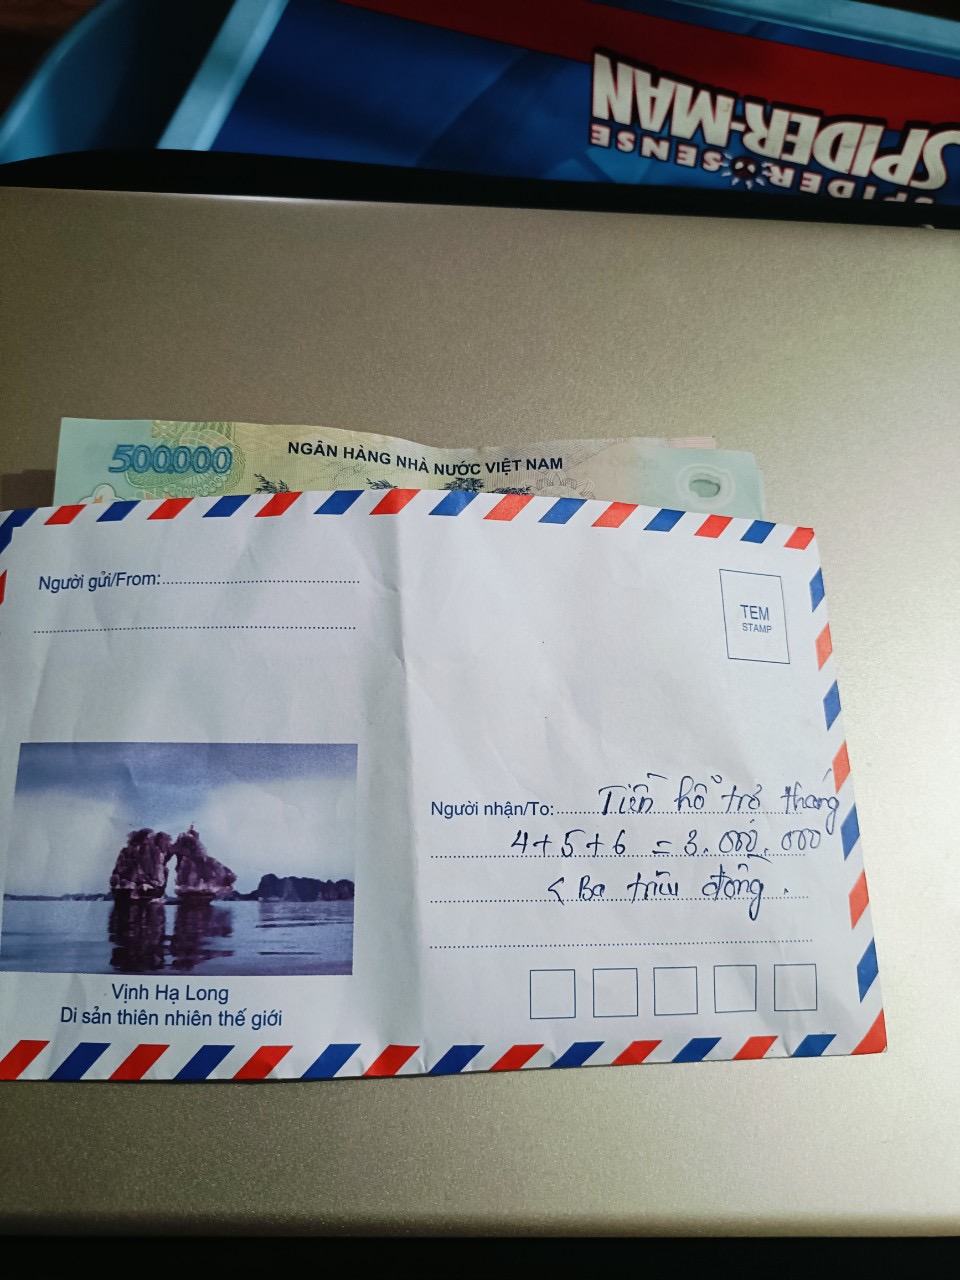 SPIDER-MAN
SPIDER SENSE
500000
NGÂN HÀNG NHÀ NƯỚC VIỆT NAM
Người gửi/From:
TEM
STAMP
Người nhận/To: Tiền hỗ trợ tháng
4 + 5 + 6 = 3.000.000
< Ba triệu đồng.
Vịnh Hạ Long
Di sản thiên nhiên thế giới